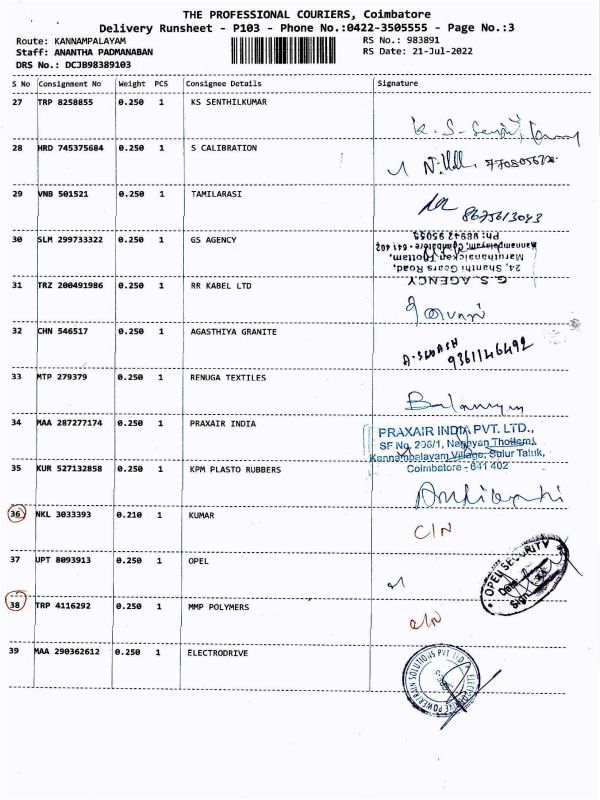 THE PROFESSIONAL COURIERS, Coimbatore
Delivery Runsheet - P103 - Phone No.:0422-3505555 - Page No.:3
Route: KANNAMPALAYAM
RS No.: 983891
Staff: ANANTHA PADMANABAN
RS Date: 21-Jul-2022
DRS No.: DCJB98389103
S No Consignment No Weight PCS Consignee Details Signature
27 TRP 8258855 0.250 1 KS SENTHILKUMAR
28 HRD 745375684 0.250 1 S CALIBRATION
29 VNB 501521 0.250 1 TAMILARASI 8675613043
30 SLM 299733322 0.250 1 GS AGENCY
G. S. AGENCY
24, Shanthi Gears Road,
Maruthanaickan Thottam,
Kannampalayam, Coimbatore - 641 402
31 TRZ 200491986 0.250 1 RR KABEL LTD
32 CHN 546517 0.250 1 AGASTHIYA GRANITE 9361146492
33 MTP 279379 0.250 1 RENUGA TEXTILES
34 MAA 287277174 0.250 1 PRAXAIR INDIA
PRAXAIR INDIA PVT. LTD.,
SF No. 206/1, Nagayan Thottam,
Kannampalayam Village, Sulur Taluk,
Coimbatore - 641 402
35 KUR 527132858 0.250 1 KPM PLASTO RUBBERS
36 NKL 3033393 0.210 1 KUMAR C/N
37 UPT 8093913 0.250 1 OPEL
OPEL SECURITY
Date
Sign
38 TRP 4116292 0.250 1 MMP POLYMERS C/N
39 MAA 290362612 0.250 1 ELECTRODRIVE
ELECTRODRIVE POWERTRAIN SOLUTIONS PVT LTD